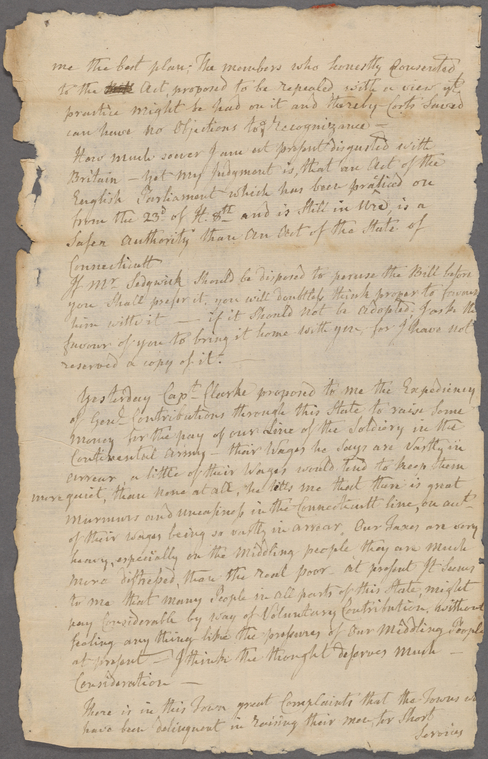 me the best plan; The members who honestly Consented
to the Act, proposed to be repealed, with a view yt
practice might be had on it and thereby Costs Saved
can have no Objections to ye recognizance —
How much soever I am at present disgusted with
Britain — Yet my Judgment is, that an Act of the
English Parliament which has been practiced on
from the 23d of H. 8th and is still in Use, is a
Safer Authority than an Act of the State of
Connecticutt
If Mr. Sedgwick Should be disposed to peruse the Bill before
you Shall prefer it, you will doubtless think proper to favour
him with it — if it Should not be adopted, I ask the
favour of you to bring it home with you, for I have not
reserved a copy of it. —
Yesterday Capt. Clarke proposed to me the Expediency
of Genl. Contributions through this State to raise Some
money for the pay of our Line of the Soldiery in the
Continental Army — their Wages he Says are Vastly in
arrear, a little of their Wages would tend to keep them
more quiet, than none at all, he tells me that there is great
murmurs and uneasiness in the Connecticutt line, on acct.
of their wages being so vastly in arrear, Our Taxes are very
heavy, especially on the middling people they are much
more distressed, than the real poor at present It Seems
to me that many People in all parts of this State, might
pay Considerable by way of Voluntary Contribution, without
feeling any thing like the pressures of our Middling People
at present — I think the thought deserves Much —
Consideration —
There is in this Town great Complaints that the Towns
have been delinquent in raising their men for Short
Services